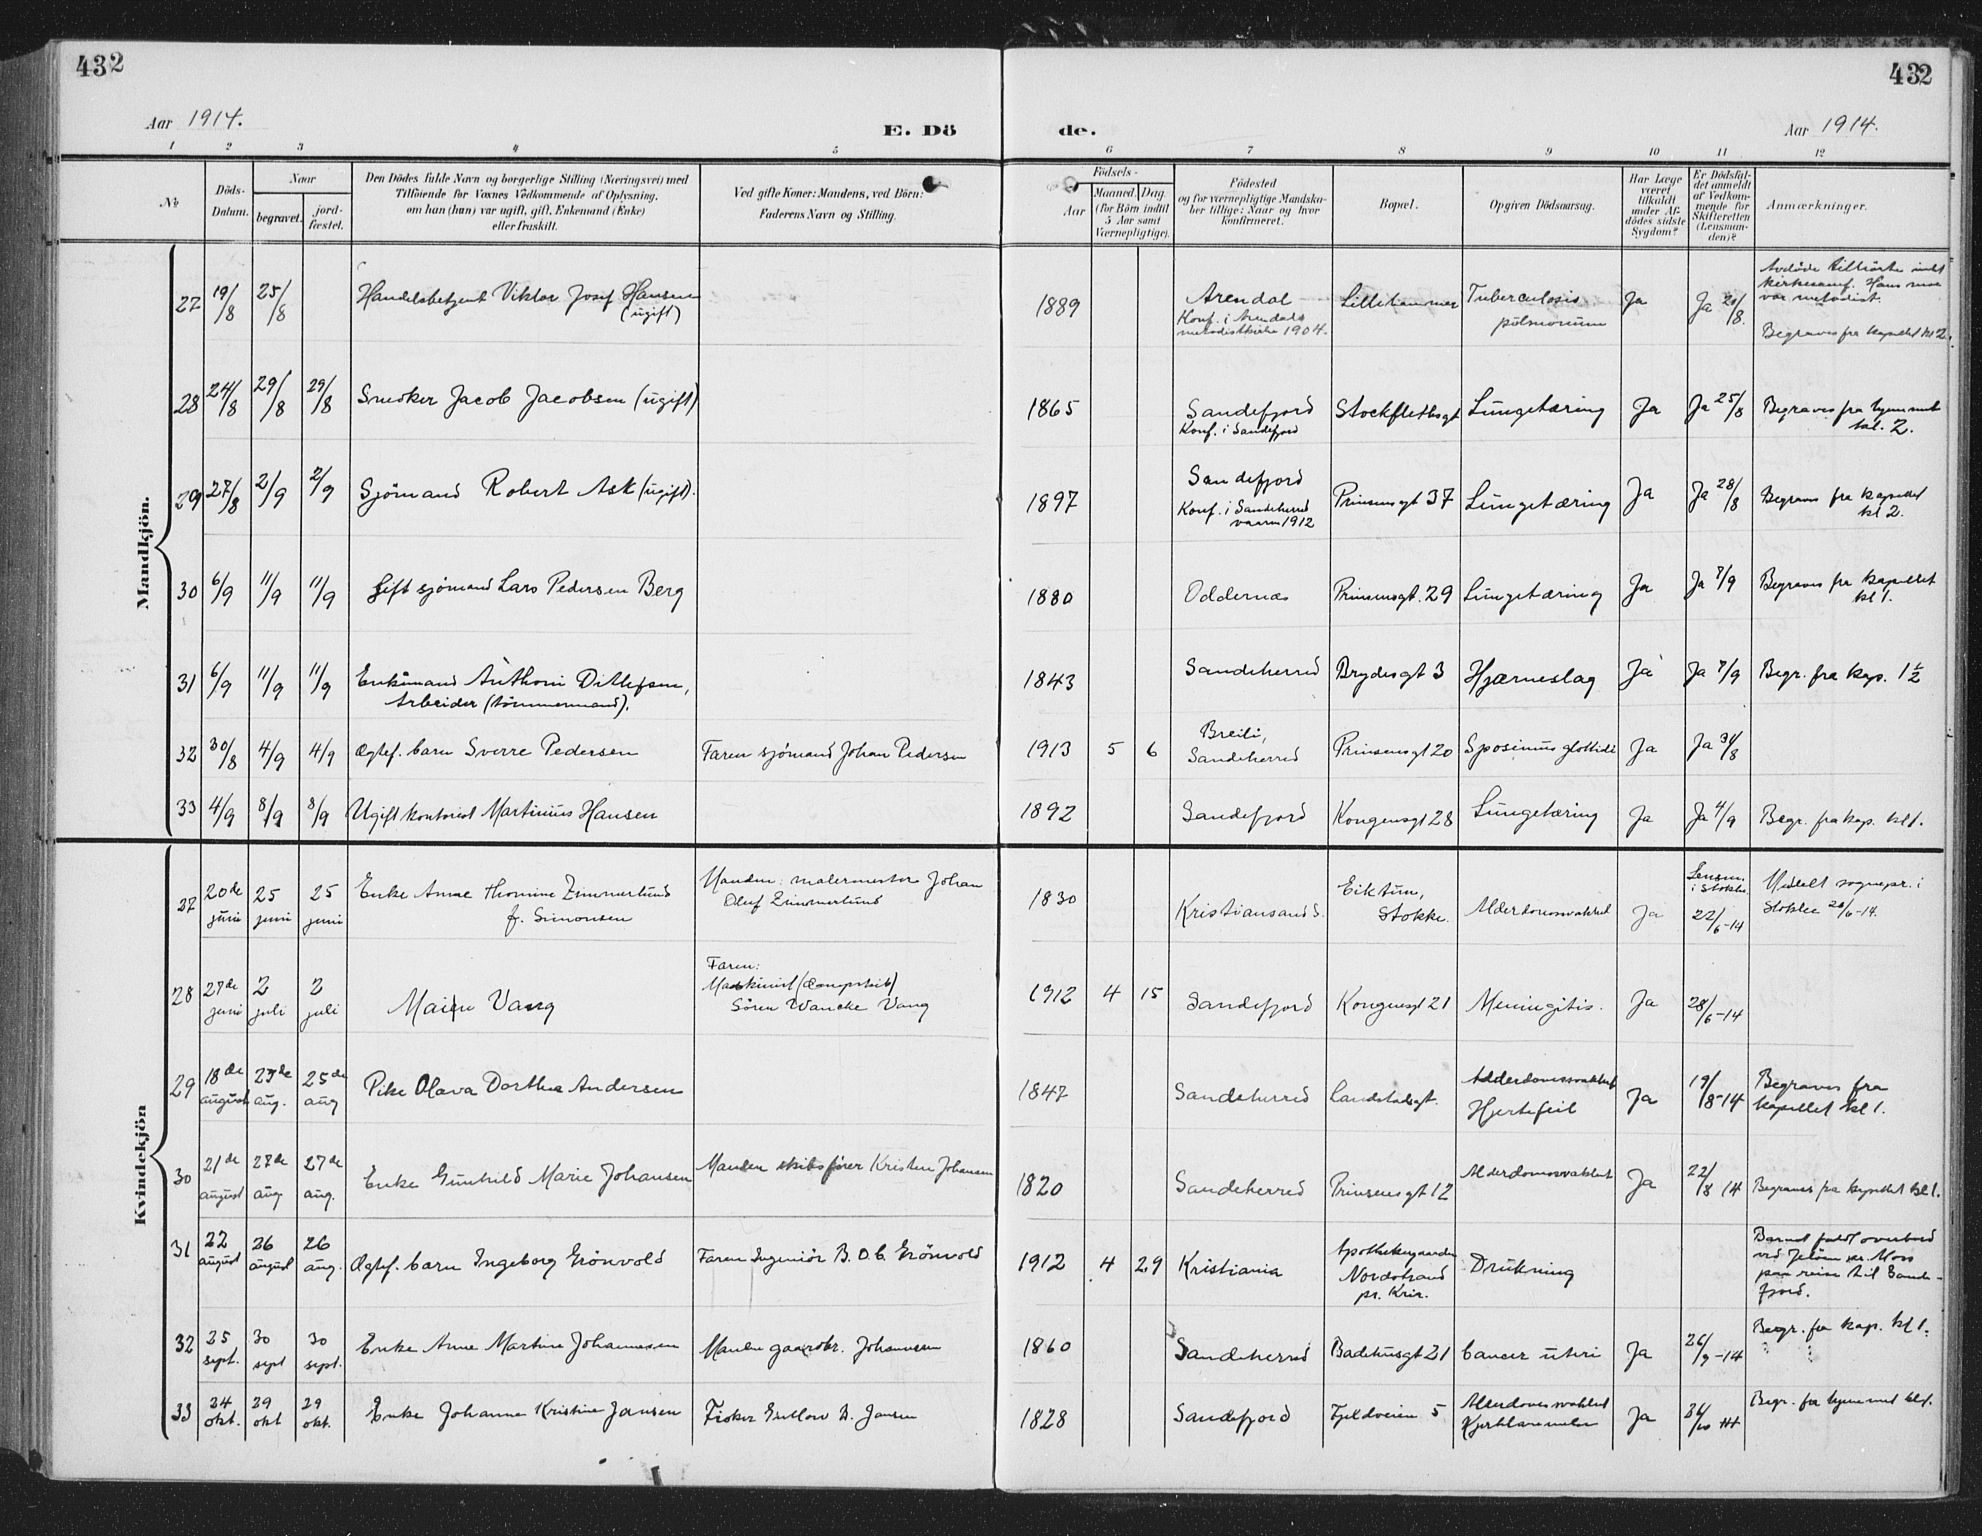 432
432
Aar 1914.
E. Dö
de.
Aar 1914.
1 2 3 4 5 6 7 8 9 10 11 12
No
Döds-
Datum.
Naar
begravet.
jord-
fæstet.
Den Dödes fulde Navn og borgerlige Stilling (Næringsvei) med
Tilföiende for Voxnes Vedkommende af Oplysning,
om han (hun) var ugift, gift, Enkemand (Enke)
eller fraskilt.
Ved gifte Koner: Mandens, ved Börn:
Faderens Navn og Stilling.
Födsels-
Aar
Maaned. Dag.
(for Börn indtil
5 Aar samt
Værnepligtige).
Födested
og for værnepligtige Mandskaber
tillige: Naar og hvor
konfirmeret.
Bopæl.
Opgiven Dödsaarsag.
Har Læge
været
tilkaldt
under Af-
dödes sidste
Sygdom?
Er Dödsfal-
det anmeldt
af Vedkom-
mende for
Skifteretten
(Lensman-
den)?
Anmærkninger.
Mandkjön.
27 19/8 25/8 Handelsbetjent Viktor Josef Hansen
(ugift)
1889 Arendal
Konf. i Arendals
metodistkirke 1904.
Lillehammer Tuberculosis
pulmonum
Ja Ja 20/8.
Avdöde tilhörte
kirkesamf. Hans
var metodist.
Begraves fra kapellet kl 2.
28 24/8 29/8 29/8 Snedker Jacob Jacobsen (ugift)
1865 Sandefjord
Konf. i Sandefjord
Stockflethsgt Lungetæring Ja Ja 25/8 Begraves fra hjemmet
kl. 2.
29 27/8 2/9 2/9 Sjömand Robert Ask (ugift).
1897 Sandefjord
Konf. i Sandeherred
vaaren 1912
Prinsensgt 37 Lungetæring Ja Ja 28/8 Begraves fra kapellet
kl 2.
30 6/9 11/9 11/9 Gift sjömand Lars Pedersen Berg
1880 Oddernæs Prinsensgt. 29 Lungetæring Ja Ja 7/9 Begraves fra kapellet
kl 1.
31 6/9 11/9 11/9 Enkemand Anthoni Ditlefsen,
Arbeider (tömmermand).
1843 Sandeherred Brydesgt 3 Hjærneslag Ja Ja 7/9 Begr. fra kap. 1 1/2
32 30/8 4/9 4/9 Ægtef. barn Sverre Pedersen Faren sjömand Johan Pedersen
1913 5 6 Breili,
Sandeherred
Prinsensgt 20 glottidi Ja Ja 31/8
33 4/9 8/9 8/9 Ugift kontorist Martinius Hansen
1892 Sandefjord Kongensgt 28 Lungetæring Ja Ja 4/9 Begr. fra kap. kl 1.
Kvindekjön
27 20de juni 25 juni 25 juni Enke Anne Thomine Zimmerlund
f. Simonsen
Manden: malermester Johan
Oluf Zimmerlund
1830 Kristiansand S. Eiktun,
Stokke.
Alderdomssvakhet Ja Lensm.
i Stokke
22/6-14
Meddelt sognepr. i
Stokke 20/6-14.
28 27de juni 2 juli 2 juli Maien Vang
Faren:
Maskinist (dampskib)
Sören Wancke Vang
1912 4 15 Sandefjord Kongensgt 21 Meningitis. Ja 28/6-14
29 18de august 25de aug. 25de aug Pike Olava Dorthea Andersen
1847 Sandeherred Landstadsgt. Alderdomssvakhet
Hjertefeil
Ja 19/8-14 Begraves fra
kapellet kl 1.
30 21de august 27de aug. 27de aug. Enke Gunhild Marie Johansen Manden skibsförer Kristen Johansen
1820 Sandeherred Prinsensgt 12 Alderdomssvakhet Ja 22/8 14 Begraves fra kapellet kl 1.
31 22 august 26 august 26 aug. Ægtef. barn Ingeborg Grönvold Faren Ingeniör B. O. C. Grönvold
1912 4 29 Kristiania Apothekergaarden
Nordstrand
pr. Kria.
Drukning
Barnet faldt overbord
ved Jelöen pr. Moss
paa reise til Sande-
fjord.
32 25 sept. 30 sept 30 sept. Enke Anne Martine Johannesen Manden gaardbr. Johannesen
1860 Sandeherred Badehusgt 21 Cancer uteri Ja 26/9-14 Begr. fra kap. kl 1.
33 24 okt. 29 okt 29 okt. Enke Johanne Kristine Jansen Fisker Gullow B. Jansen
1828 Sandefjord Fjeldveien 5 Alderdomssvakhet
Hjertelammelse
Ja 26/10 14 Begr. fra hjemmet kl 1.